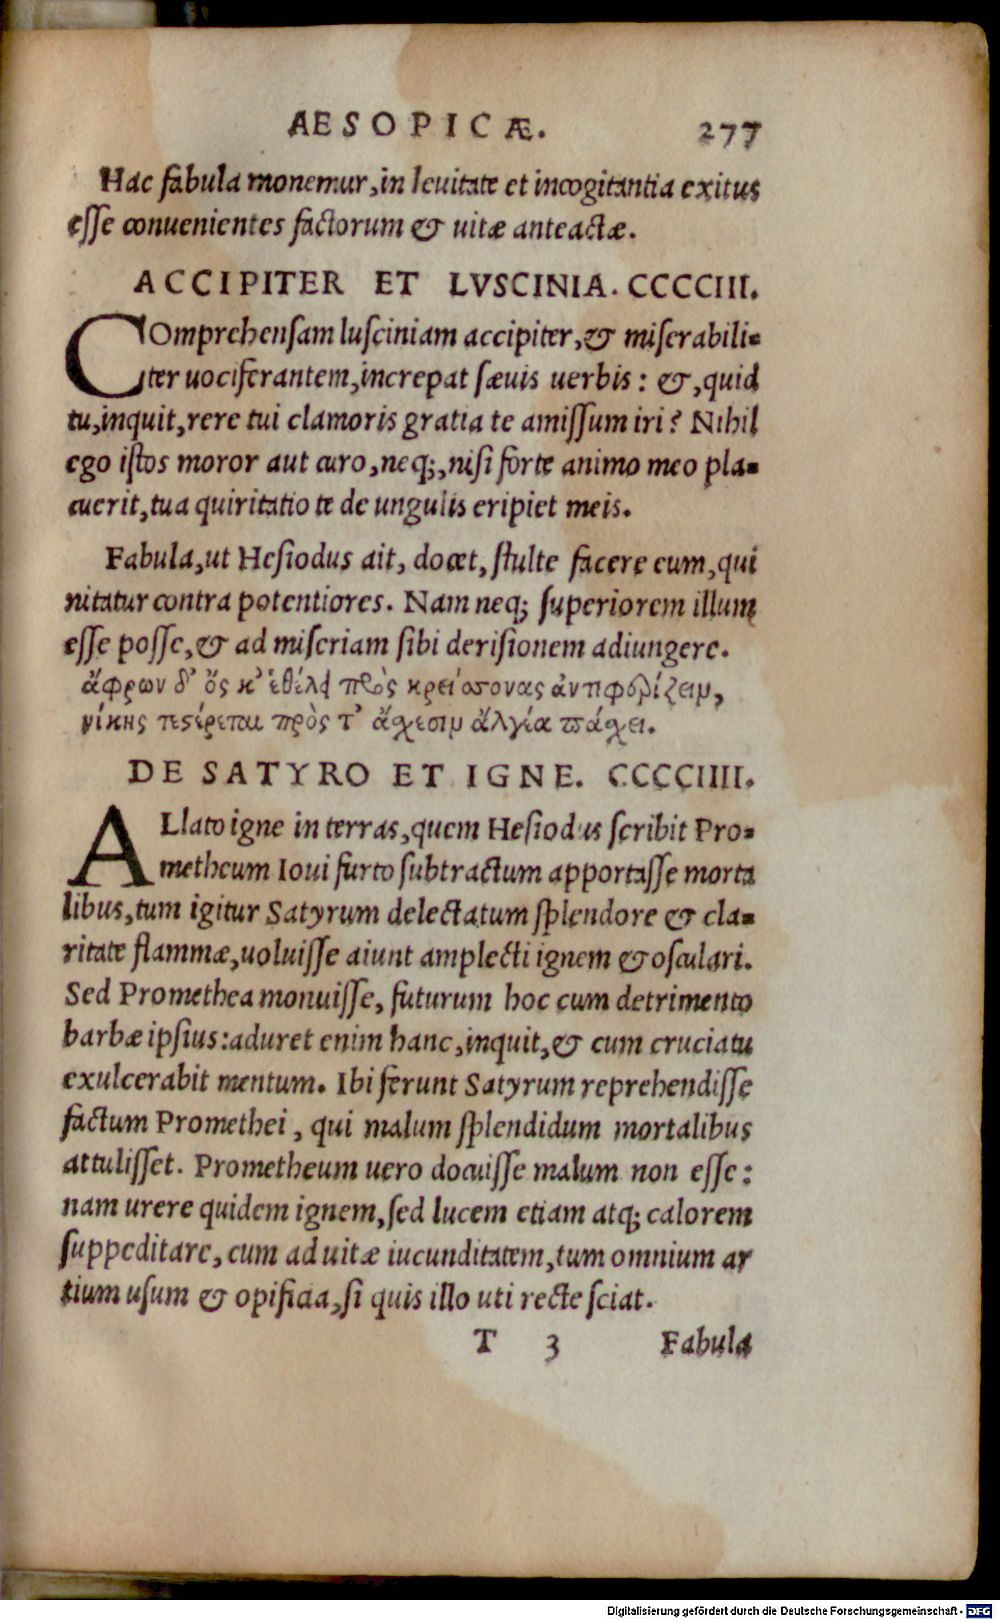 AESOPICÆ. 277
Hac fabula monemur, in leuitate et incogitantia exitus
esse conuenientes factorum & uitæ anteactæ.
ACCIPITER ET LVSCINIA. CCCCIII.
COmprehensam lusciniam accipiter, & miserabili=
ter uociferantem, increpat sæuis uerbis: &, quid
tu, inquit, rere tui clamoris gratia te amissum iri? Nihil
ego istos moror aut curo, neq;, nisi forte animo meo pla=
cuerit, tua quiritatio te de ungulis eripiet meis.
Fabula, ut Hesiodus ait, docet, stulte facere eum, qui
nitatur contra potentiores. Nam neq; superiorem illum
esse posse, & ad miseriam sibi derisionem adiungere.
ἄφρων δ' ὅς κ' ἐθέλῃ πρὸς κρείσσονας ἀντιφερίζειν,
νίκης τε στέρεται πρὸς τ' ἄχεσιν ἄλγεα πάχει.
DE SATYRO ET IGNE. CCCCIIII.
ALlato igne in terras, quem Hesiodus scribit Pro=
metheum Ioui furto subtractum apportasse morta
libus, tum igitur Satyrum delectatum splendore & cla=
ritate flammæ, uoluisse aiunt amplecti ignem & osculari.
Sed Promethea monuisse, futurum hoc cum detrimento
barbæ ipsius: aduret enim hanc, inquit, & cum cruciatu
exulcerabit mentum. Ibi ferunt Satyrum reprehendisse
factum Promethei, qui malum splendidum mortalibus
attulisset. Prometheum uero docuisse malum non esse:
nam urere quidem ignem, sed lucem etiam atq; calorem
suppeditare, cum ad uitæ iucunditatem, tum omnium ar
tium usum & opificia, si quis illo uti recte sciat.
T 3 Fabula
Digitalisierung gefördert durch die Deutsche Forschungsgemeinschaft - DFG